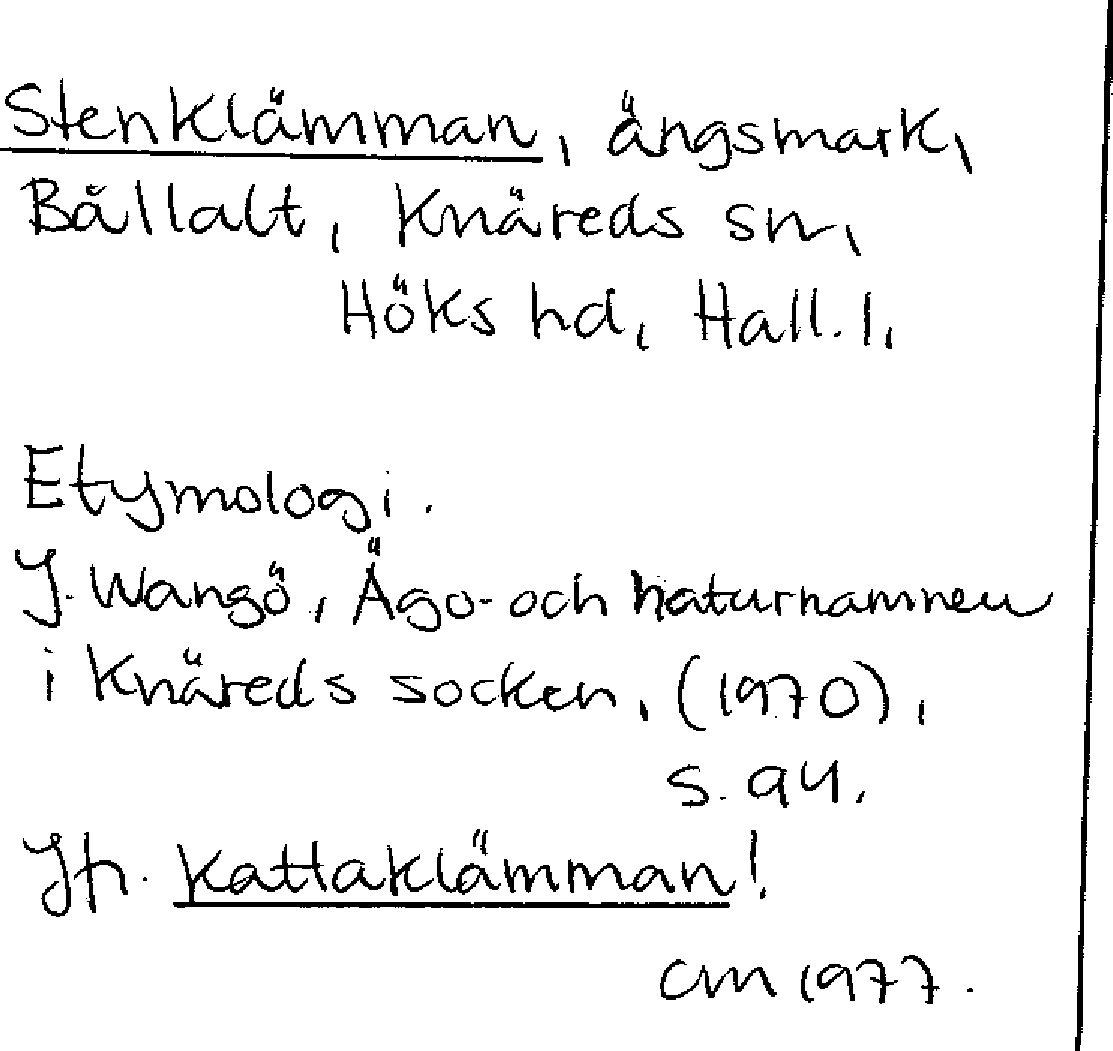 Stenklämman, ängsmark,
Bållalt, Knäreds sn,
Höks hd, Hall. l.
Etymologi.
J. Wangö, Ägo- och naturnamnen
i Knäreds socken, (1970),
s. 94.
Jfr. Kattaklämman!
CM 1977.